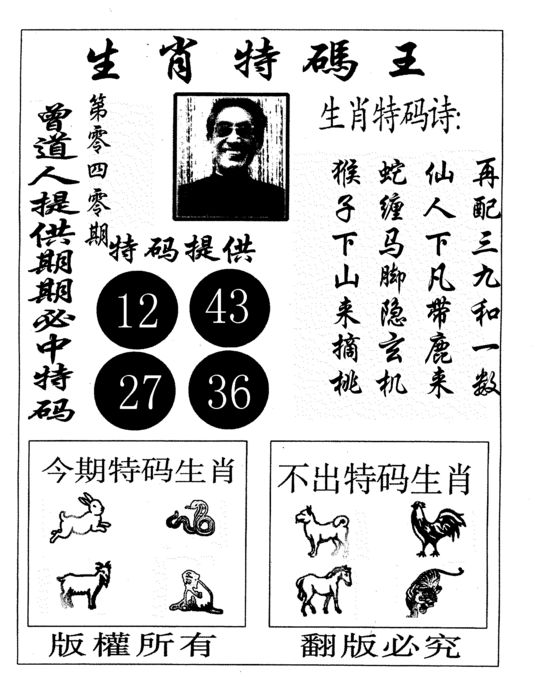 生肖特碼王
曾道人提供期期必中特码
第零四零期
生肖特码诗:
猴子下山来摘桃
蛇缠马脚隐玄机
仙人下凡带鹿来
再配三九和一数
特码提供
12 43
27 36
今期特码生肖
不出特码生肖
版權所有
翻版必究